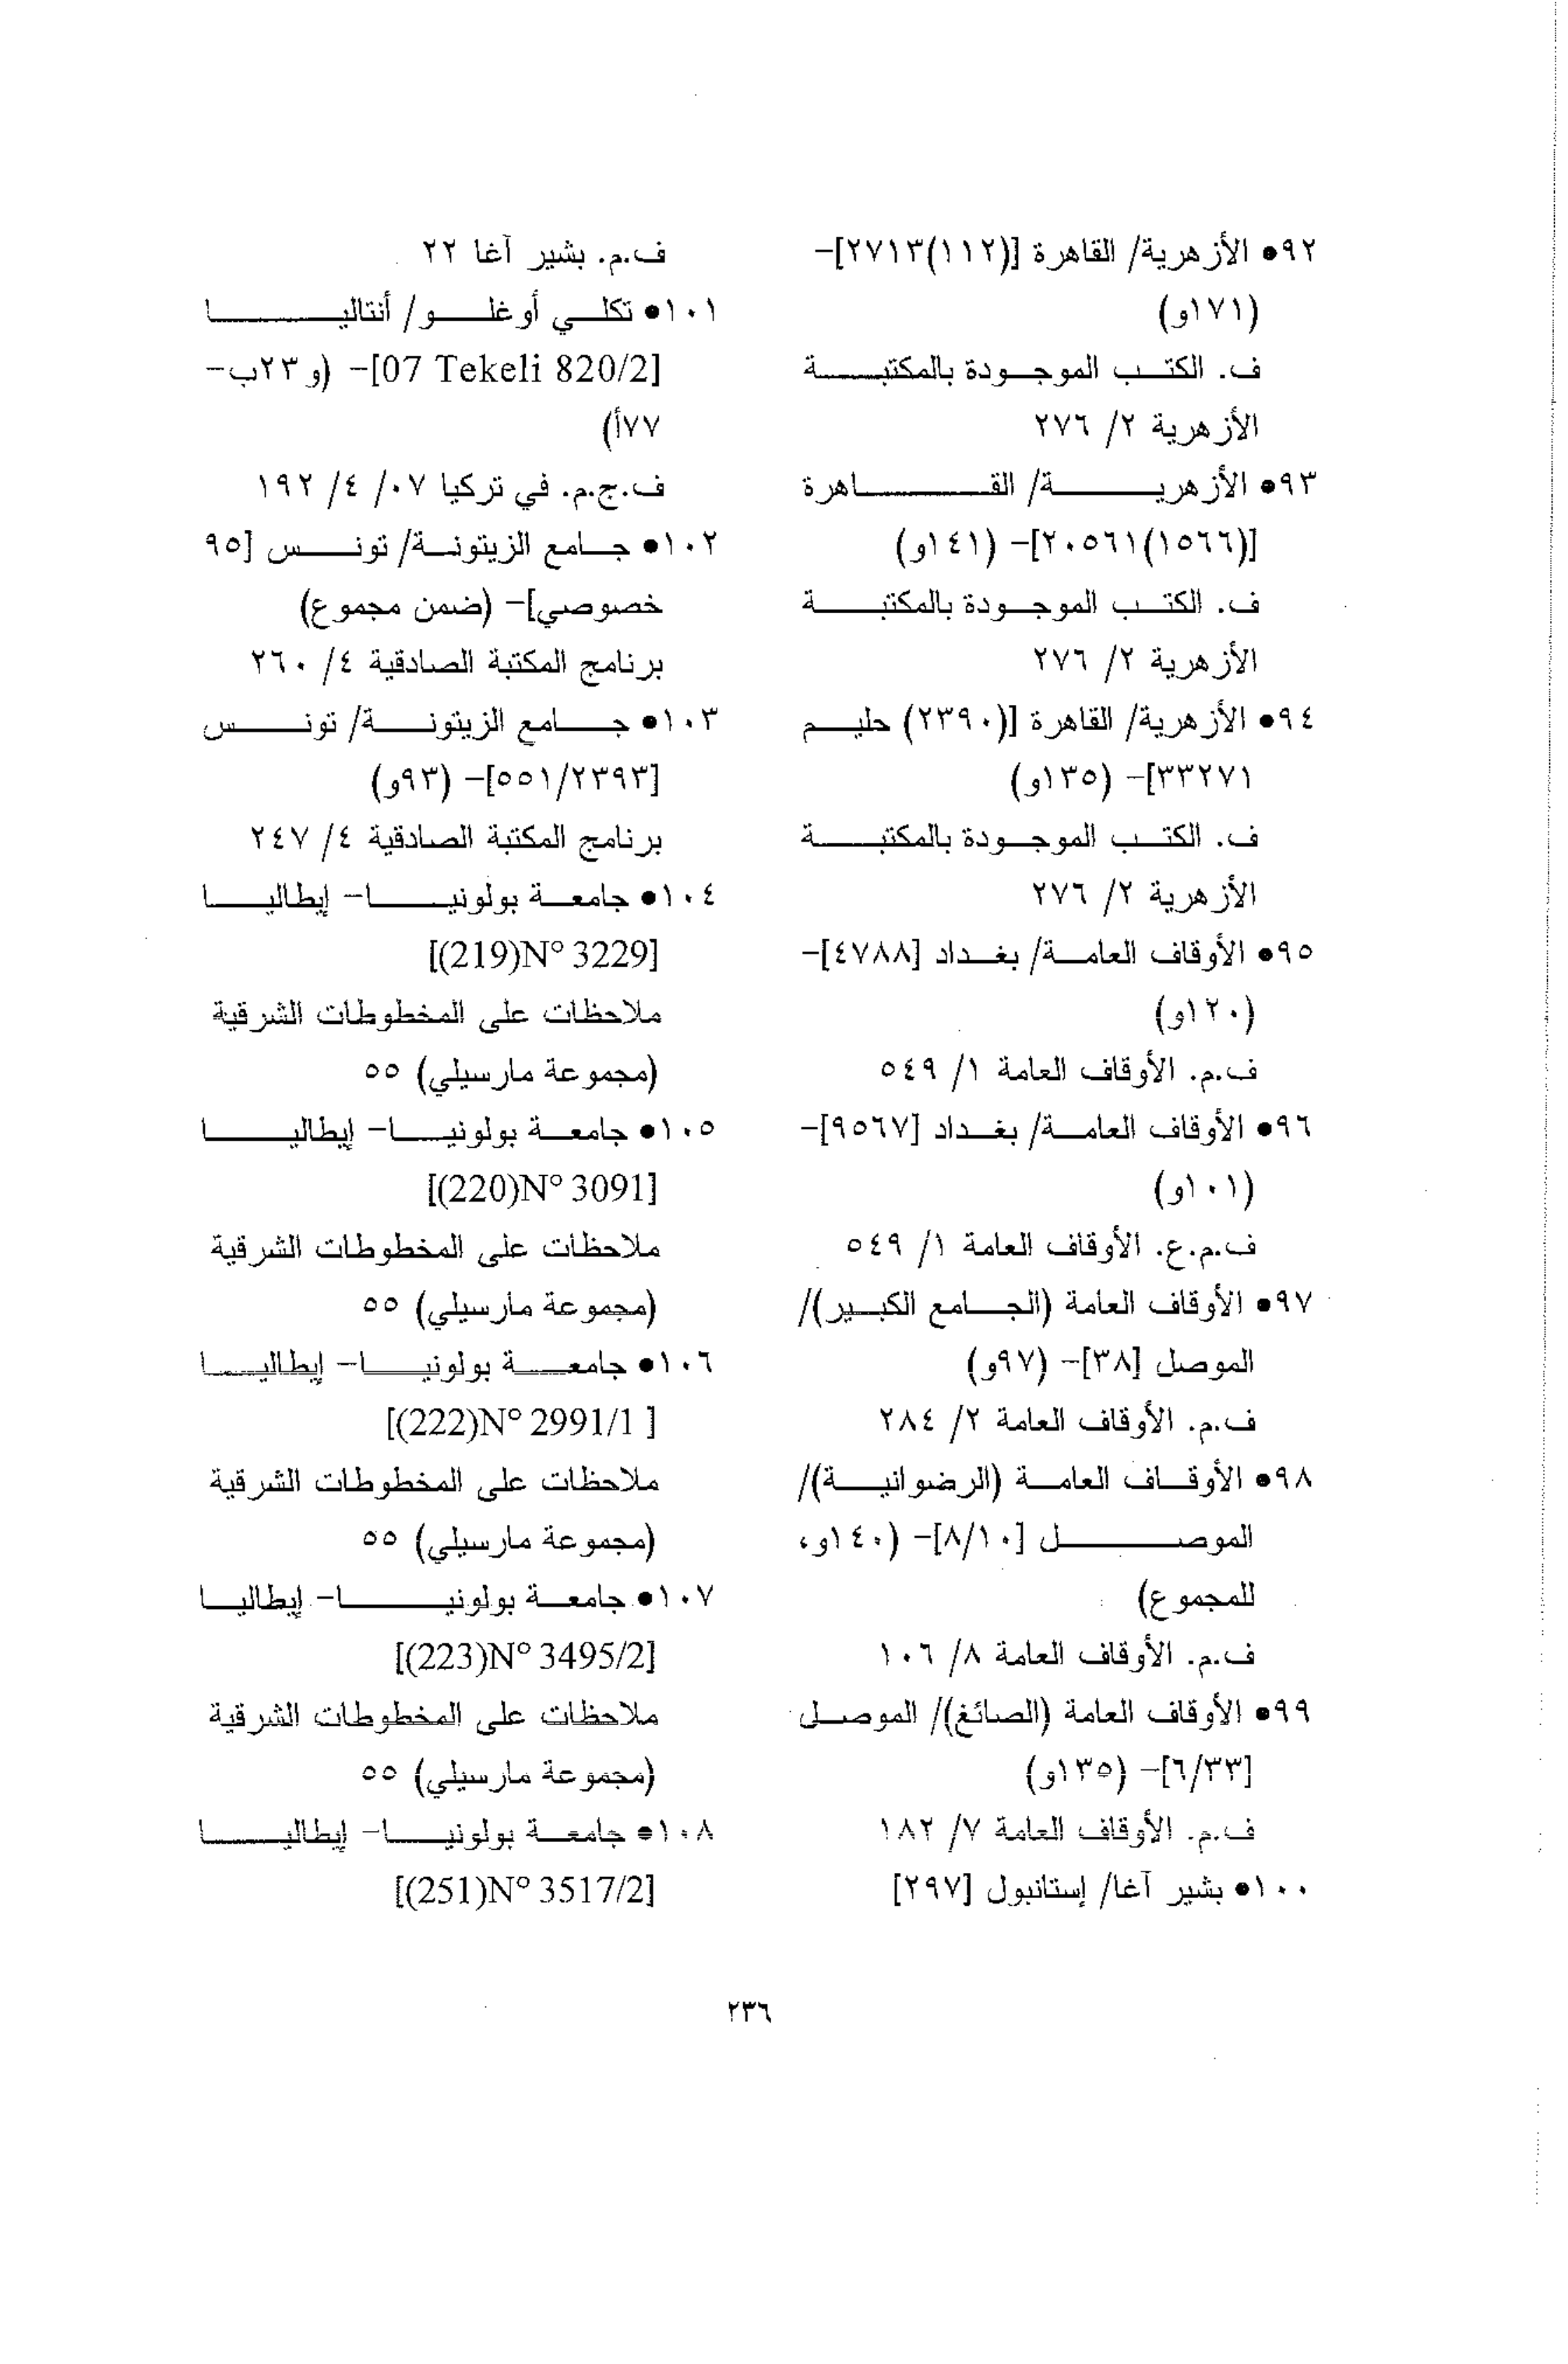 ٩٢● الأزهرية/ القاهرة [(١١٢)٢٧١٣]-
(١٧١و)
ف. الكتب الموجودة بالمكتبة
الأزهرية ٢/ ٢٧٦
٩٣● الأزهرية/ القاهرة
[(١٥٦٦)٢٠٥٦١]- (١٤١و)
ف. الكتب الموجودة بالمكتبة
الأزهرية ٢/ ٢٧٦
٩٤● الأزهرية/ القاهرة [(٢٣٩٠) حليم
٣٣٢٧١]- (١٣٥و)
ف. الكتب الموجودة بالمكتبة
الأزهرية ٢/ ٢٧٦
٩٥● الأوقاف العامة/ بغداد [٤٧٨٨]-
(١٢٠و)
ف.م. الأوقاف العامة ١/ ٥٤٩
٩٦● الأوقاف العامة/ بغداد [٩٥٦٧]-
(١٠١و)
ف.م.ع. الأوقاف العامة ١/ ٥٤٩
٩٧● الأوقاف العامة (الجامع الكبير)/
الموصل [٣٨]- (٩٧و)
ف.م. الأوقاف العامة ٢/ ٢٨٤
٩٨● الأوقاف العامة (الرضوانية)/
الموصل [٨/١٠]- (١٤٠و،
للمجموع)
ف.م. الأوقاف العامة ٨/ ١٠٦
٩٩● الأوقاف العامة (الصائغ)/ الموصل
[٦/٣٣]- (١٣٥و)
ف.م. الأوقاف العامة ٧/ ١٨٢
١٠٠● بشير آغا/ إستانبول [٢٩٧]
ف.م. بشير آغا ٢٢
١٠١● تكلي أوغلو/ أنتاليا
[07 Tekeli 820/2]- (و٢٣ب-
٧٧أ)
ف.ج.م. في تركيا ٠٧/ ٤/ ١٩٢
١٠٢● جامع الزيتونة/ تونس [٩٥
خصوصي]- (ضمن مجموع)
برنامج المكتبة الصادقية ٤/ ٢٦٠
١٠٣● جامع الزيتونة/ تونس
[٥٥١/٢٣٩٣]- (٩٣و)
برنامج المكتبة الصادقية ٤/ ٢٤٧
١٠٤● جامعة بولونيا- إيطاليا
[(219)N° 3229]
ملاحظات على المخطوطات الشرقية
(مجموعة مارسيلي) ٥٥
١٠٥● جامعة بولونيا- إيطاليا
[(220)N° 3091]
ملاحظات على المخطوطات الشرقية
(مجموعة مارسيلي) ٥٥
١٠٦● جامعة بولونيا- إيطاليا
[(222)N° 2991/1 ]
ملاحظات على المخطوطات الشرقية
(مجموعة مارسيلي) ٥٥
١٠٧● جامعة بولونيا- إيطاليا
[(223)N° 3495/2]
ملاحظات على المخطوطات الشرقية
(مجموعة مارسيلي) ٥٥
١٠٨● جامعة بولونيا- إيطاليا
[(251)N° 3517/2]
٢٣٦